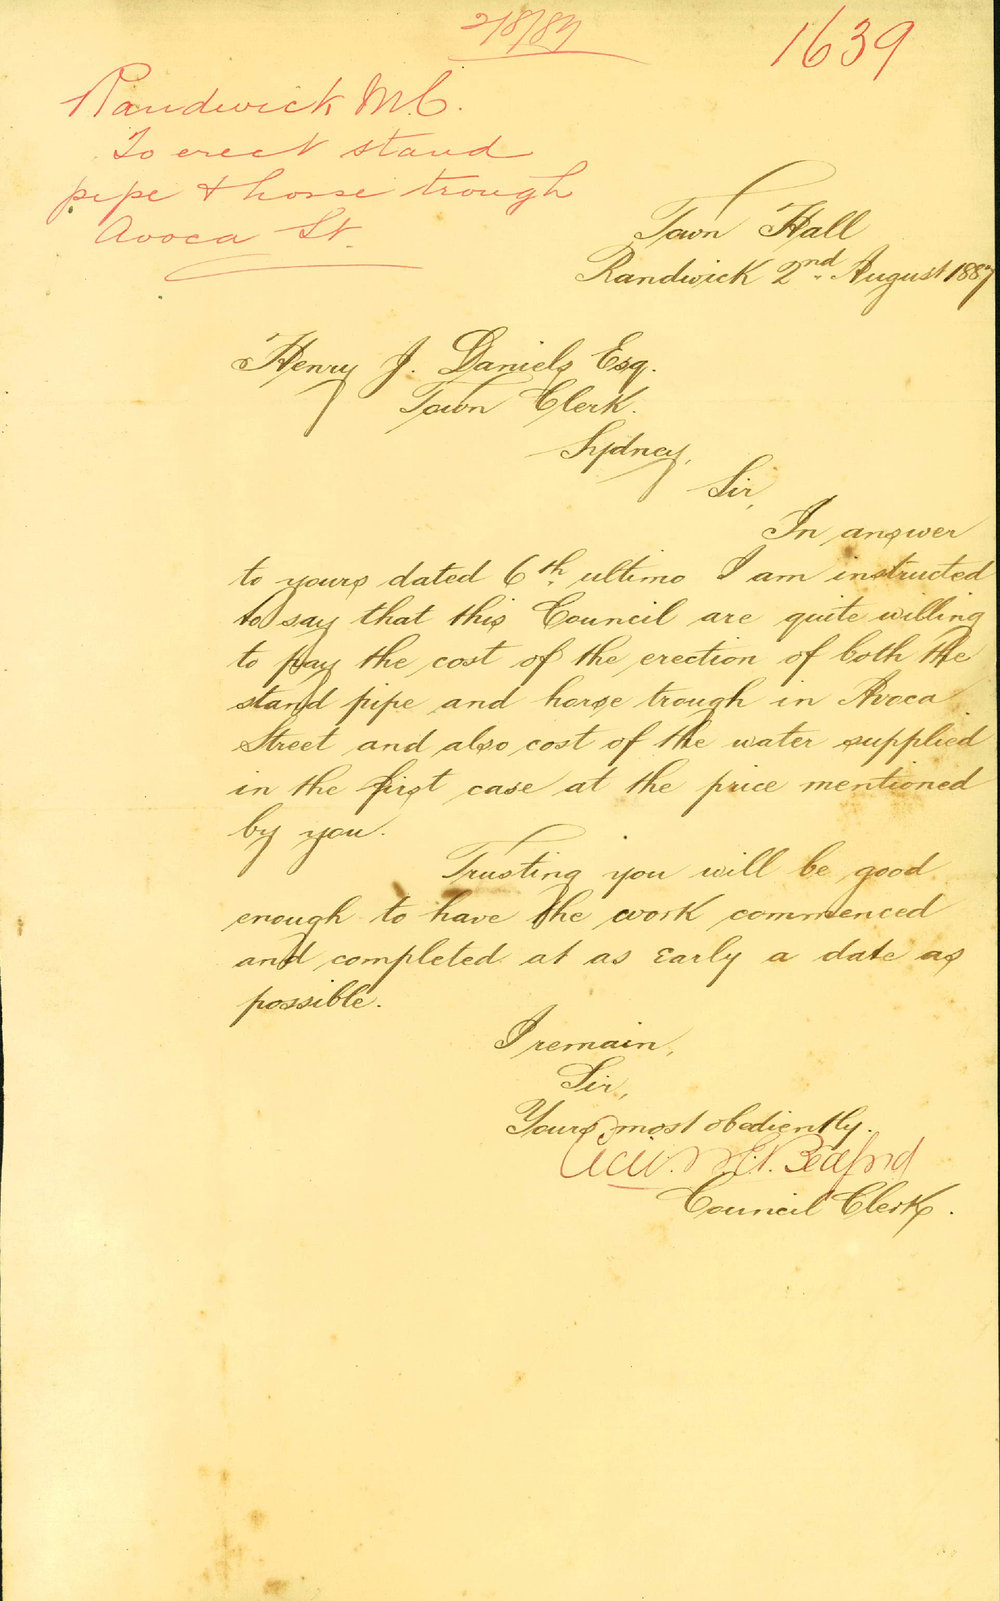 2/8/87
1639
Randwick M.C.
To erect stand
pipe & horse trough
Avoca St.
Town Hall
Randwick 2nd August 1887
Henry J. Daniels Esq.
Town Clerk.
Sydney.
Sir,
In answer
to yours dated 6th ultimo I am instructed
to say that this Council are quite willing
to pay the cost of the erection of both the
stand pipe and horse trough in Avoca
Street and also cost of the water supplied
in the first case at the price mentioned
by you.
Trusting you will be good
enough to have the work commenced
and completed at as Early a date as
possible.
I remain,
Sir,
Yours most obediently.
Council Clerk.